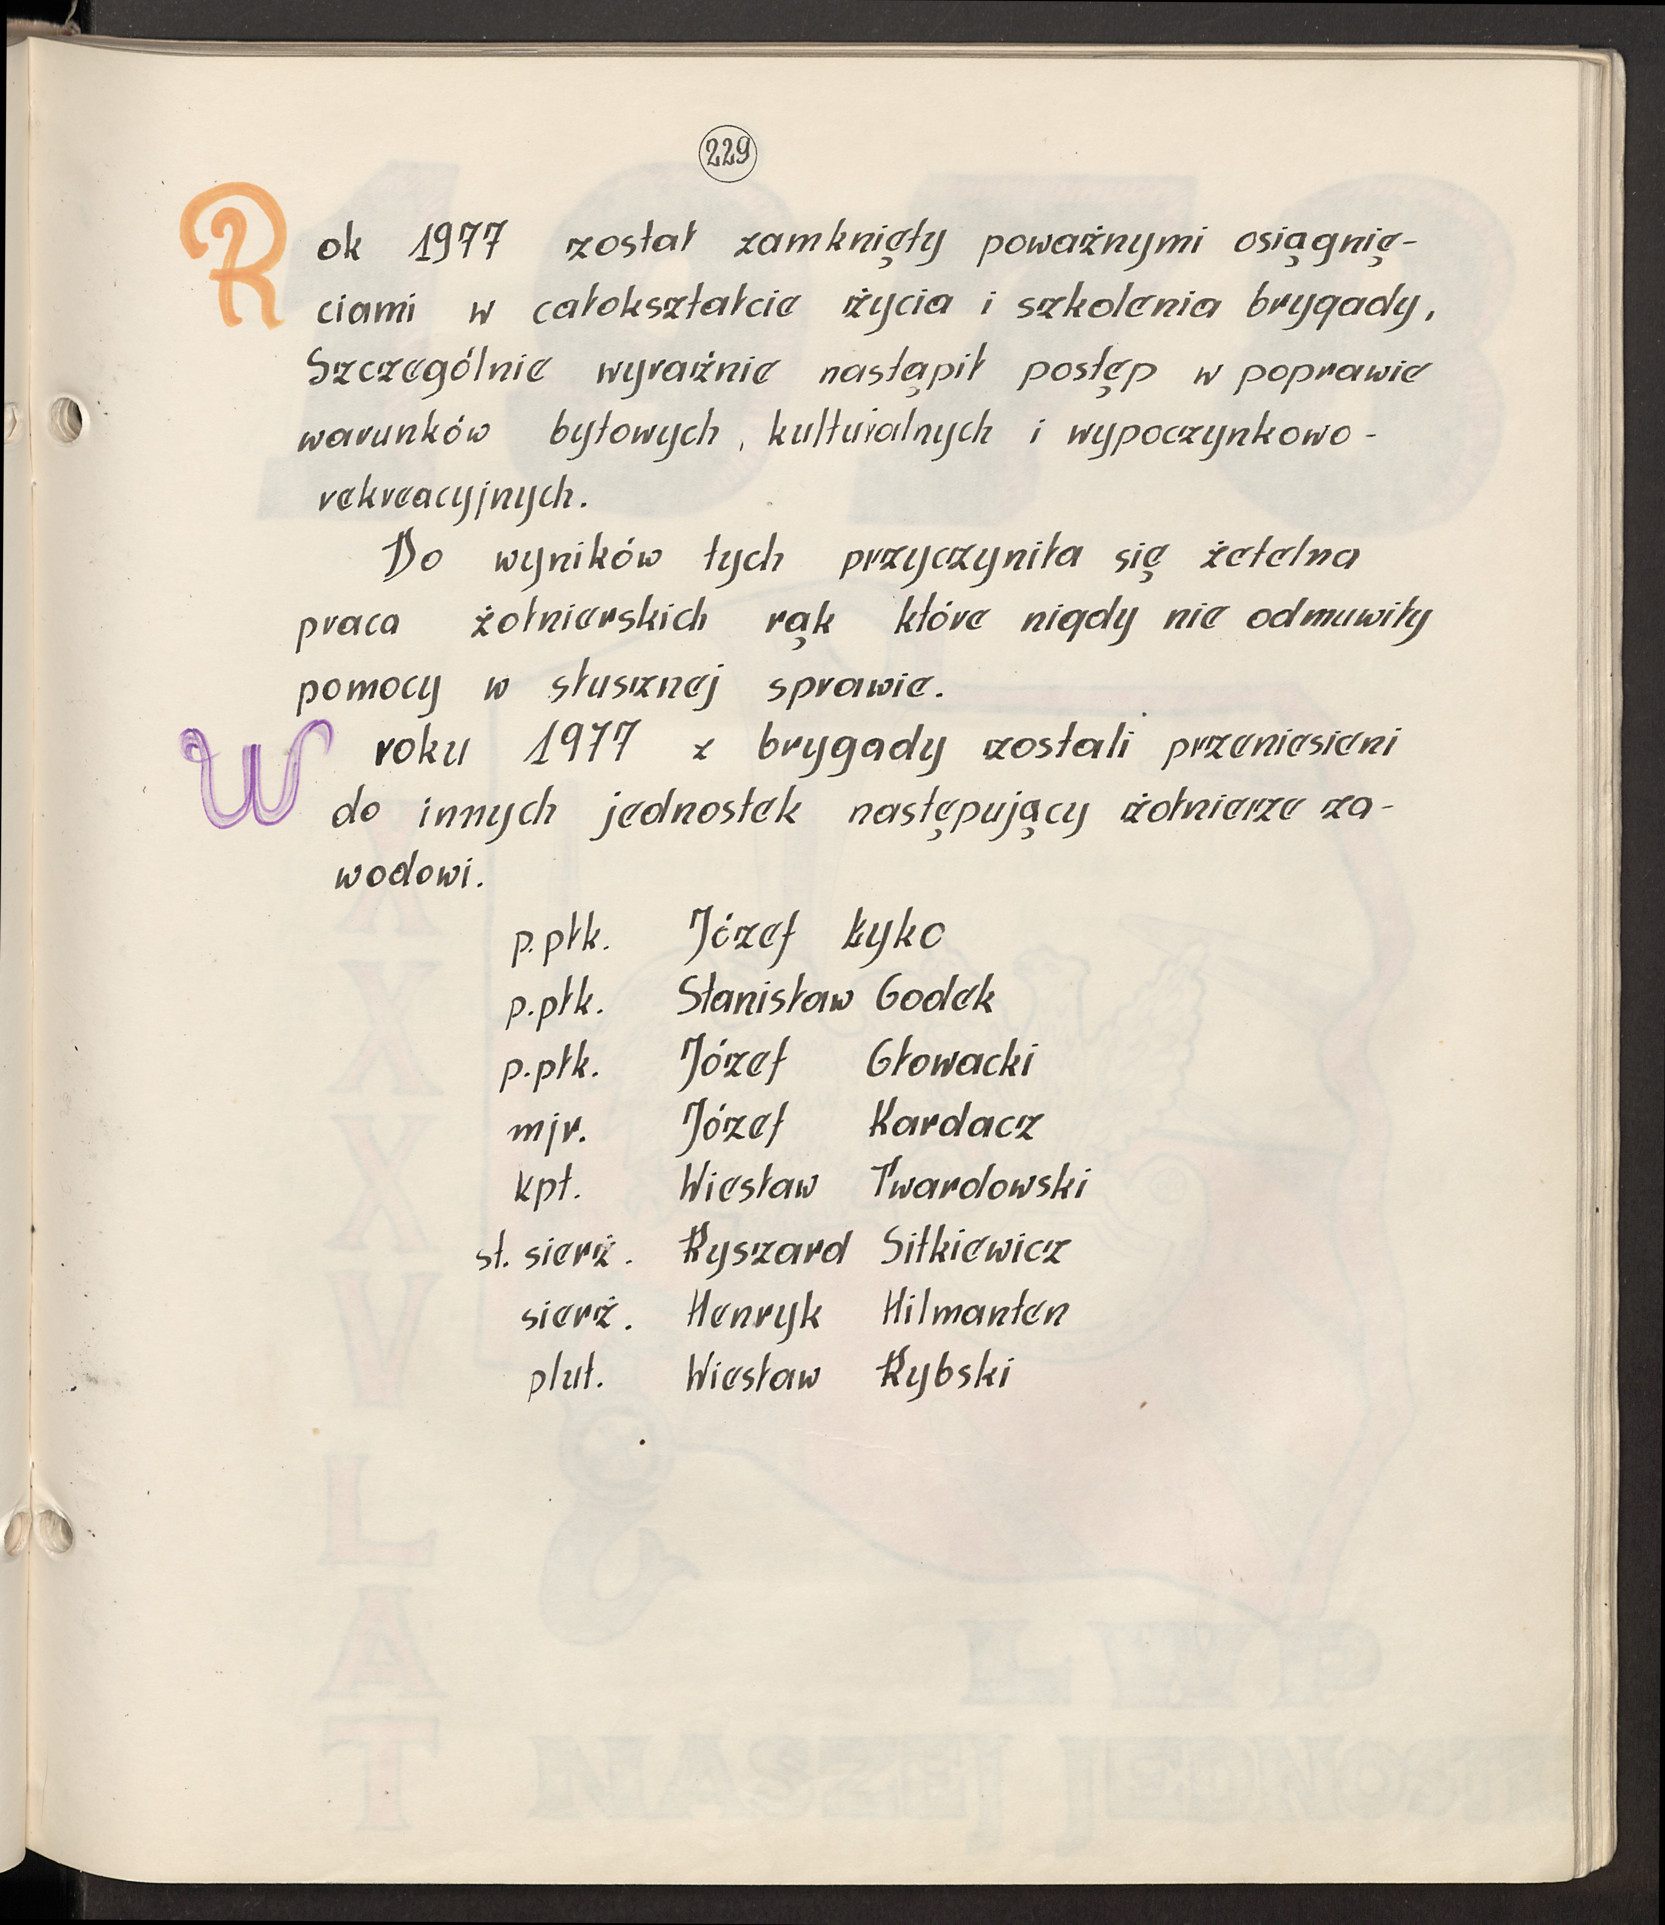 229
Rok 1977 został zamknięty poważnymi osiągnię-
ciami w całokształcie życia i szkolenia brygady.
Szczególnie wyraźnie nastąpił postęp w poprawie
warunków bytowych, kulturalnych i wypoczynkowo-
rekreacyjnych.
Do wyników tych przyczyniła się żetelna
praca żołnierskich rąk które nigdy nie odmuwiły
pomocy w słusznej sprawie.
W roku 1977 z brygady zostali przeniesieni
do innych jednostek następujący żołnierze za-
wodowi.
p.płk. Józef Łyko
p.płk. Stanisław Godek
p.płk. Józef Głowacki
mjr. Józef Kardacz
kpt. Wiesław Twardowski
st. sierż. Ryszard Sitkiewicz
sierż. Henryk Hilmanten
plut. Wiesław Rybski